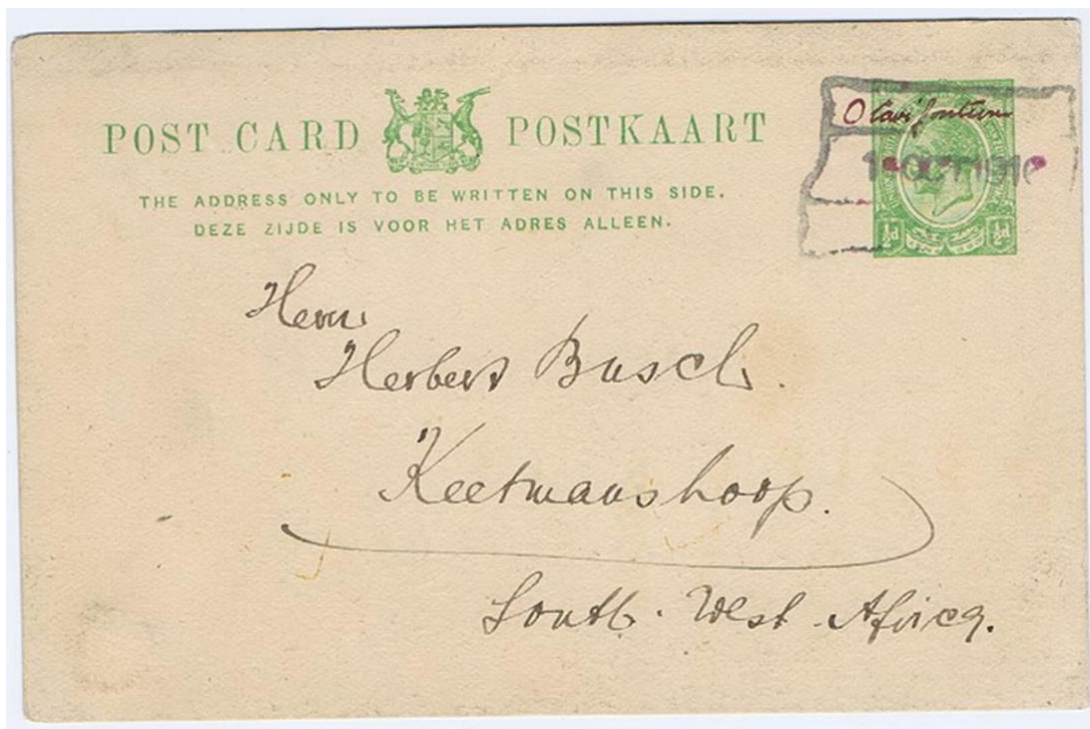 POST CARD POSTKAART
THE ADDRESS ONLY TO BE WRITTEN ON THIS SIDE.
DEZE ZIJDE IS VOOR HET ADRES ALLEEN.
Otavifontein
1 OCT 1916
½d ½d
Herrn
Herbert Busch.
Keetmanshoop.
South. West Africa.